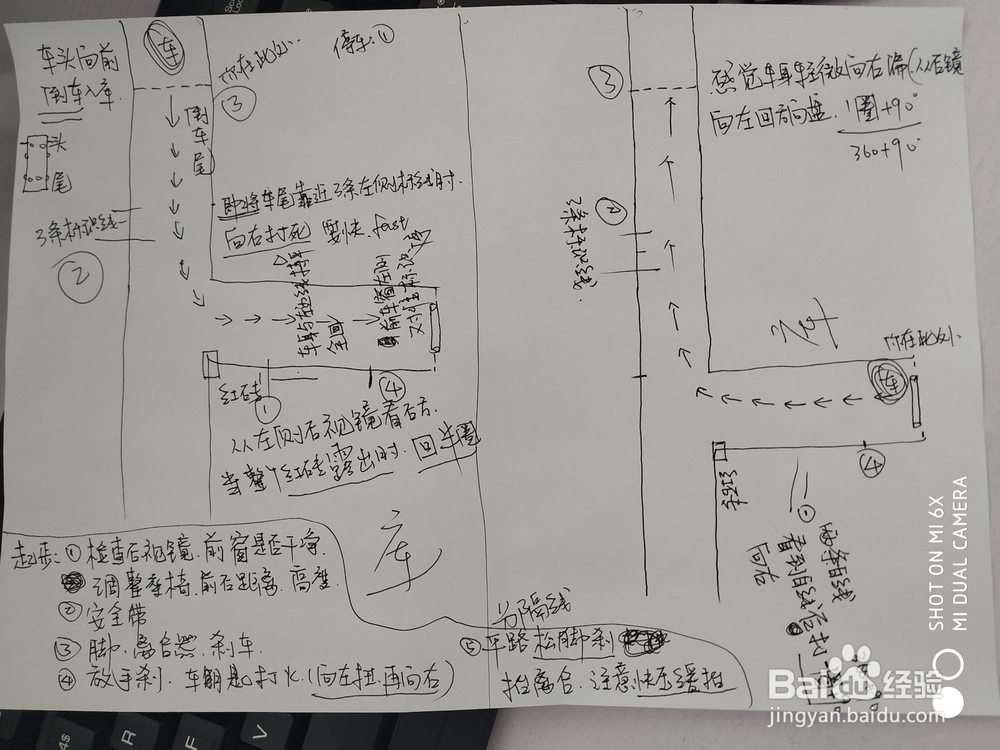 车头向前
倒车入库
头
尾
3条标识线
②
车
倒车尾
你在此处
③
停车:①
即将车尾靠近3条左侧标线时.
向右打死 要快. fast
车身与边线
全回
红砖
①
④
从左侧后视镜看右
当整个红砖露出时. 回半圈
库
起步: ① 检查后视镜. 前窗是否干净.
调整座椅. 前后距离. 高度.
② 安全带
③ 脚. 离合器. 刹车.
④ 放手刹. 车钥匙打火 (向左扭. 再向右)
分隔线
⑤ 平路松脚刹
抬离合. 注意快压缓抬
③
感觉车身轻微向右偏(从后镜
向左回方向盘. 1圈+90°
360+90°
②
3条标识线
你在此处
车
④
红砖
①
两条白线
看到白线
向右
SHOT ON MI 6X
MI DUAL CAMERA
Baidu 经验
jingyan.baidu.com